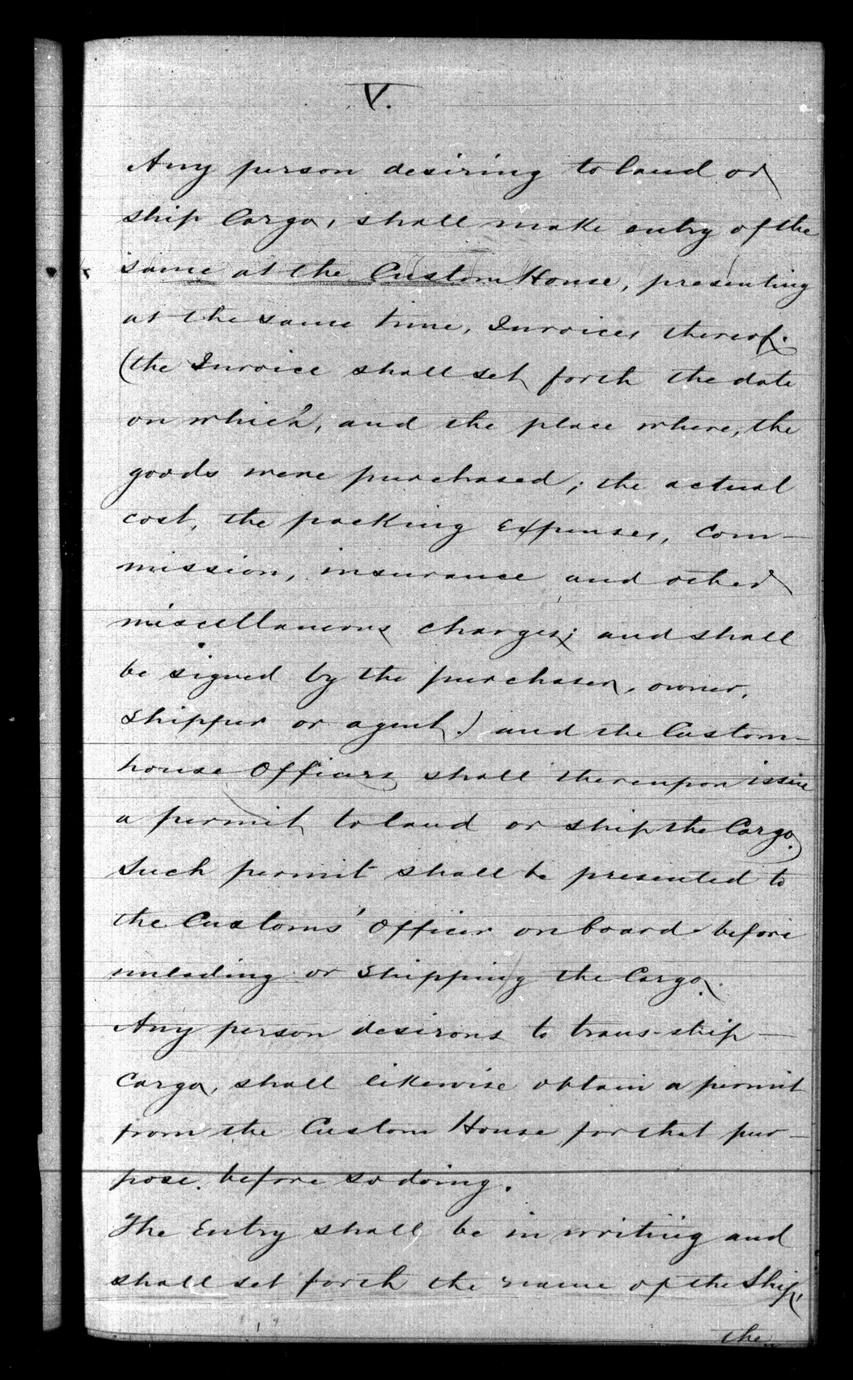 V.
Any person desiring to land or
ship Cargo, shall make entry of the
same at the Custom House, presenting
at the same time, Invoices thereof.
(the Invoice shall set forth the date
on which, and the place where, the
goods were purchased; the actual
cost, the packing expenses, com-
mission, insurance and other
miscellaneous charges; and shall
be signed by the purchaser, owner,
shipper or agent.) and the Custom-
house Officers shall thereupon issue
a permit to land or ship the Cargo.
Such permit shall be presented to
the Customs' Officer on board before
unlading or shipping the Cargo.
Any person desirous to trans-ship
Cargo, shall likewise obtain a permit
from the Custom House for that pur-
pose before so doing.
The Entry shall be in writing and
shall set forth the name of the Ship,
the